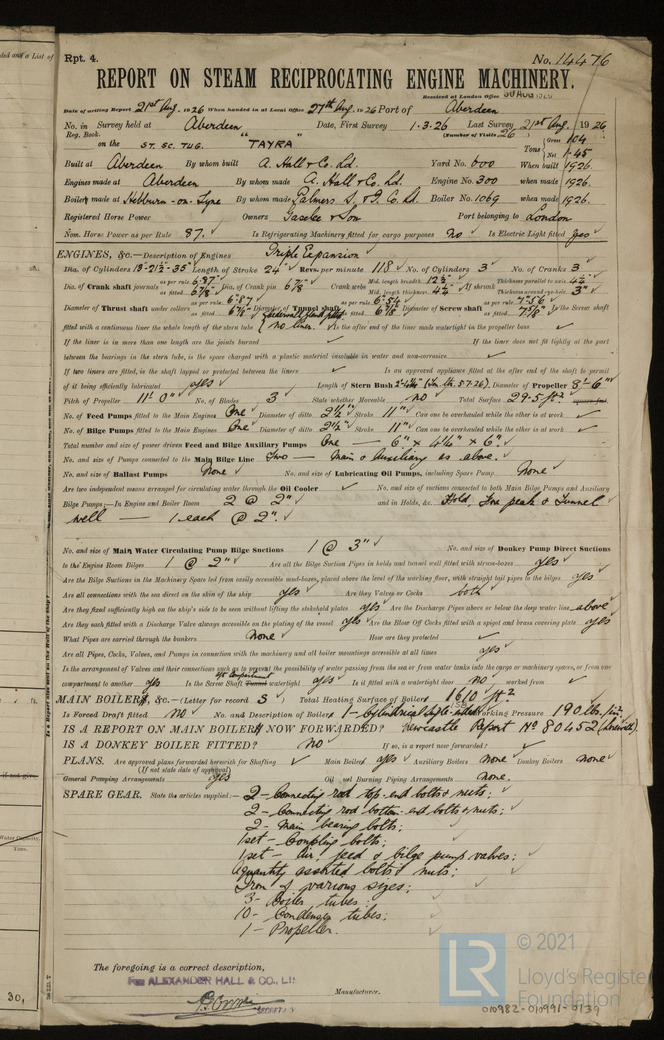 Rpt. 4.
No. 14476
REPORT ON STEAM RECIPROCATING ENGINE MACHINERY.
Received at London Office 30 AUG 1926
Date of writing Report 21st Aug. 1926 When handed in at Local Office 27th Aug. 1926 Port of Aberdeen
No. in Survey held at Aberdeen Date, First Survey 1.3.26 Last Survey 21st Aug. 1926
Reg. Book. (Number of Visits 26)
on the ST. SC. TUG. "TAYRA" Tons Gross 104 Net 1.45
Built at Aberdeen By whom built A. Hall & Co. Ld. Yard No. 600 When built 1926.
Engines made at Aberdeen By whom made A. Hall & Co. Ld. Engine No. 300 when made 1926.
Boiler made at Hebburn-on-Tyne By whom made Palmers S. & I. Co. Ld. Boiler No. 1069 when made 1926.
Registered Horse Power Owners Gaselee & Son Port belonging to London
Nom. Horse Power as per Rule 87. Is Refrigerating Machinery fitted for cargo purposes no Is Electric Light fitted yes
ENGINES, &c.—Description of Engines Triple Expansion
Dia. of Cylinders 13-21½-35" Length of Stroke 24" Revs. per minute 118 No. of Cylinders 3 No. of Cranks 3
Dia. of Crank shaft journals as per rule 6.87" as fitted 6⅞" Dia. of Crank pin 6⅞" Crank webs Mid. length breadth 12½" Mid. length thickness 4¼" If shrunk Thickness parallel to axis 4¼" Thickness around eye-hole 3"
Diameter of Thrust shaft under collars as per rule 6.87 as fitted 6⅞" Diameter of Tunnel shaft as per rule 6.54 as fitted 6⅞" Diameter of Screw shaft as per rule 7.56 as fitted 7⅝" Is the Screw shaft
fitted with a continuous liner the whole length of the stern tube no liner. Is the after end of the liner made watertight in the propeller boss
If the liner is in more than one length are the joints burned If the liner does not fit tightly at the part
between the bearings in the stern tube, is the space charged with a plastic material insoluble in water and non-corrosive.
If two liners are fitted, is the shaft lapped or protected between the liners Is an approved appliance fitted at the after end of the shaft to permit
of it being efficiently lubricated yes Length of Stern Bush Diameter of Propeller 8'-6"
Pitch of Propeller 11'0" No. of Blades 3 State whether Moveable no Total Surface 29.5 ft²
No. of Feed Pumps fitted to the Main Engines One Diameter of ditto 2½" Stroke 11" Can one be overhauled while the other is at work
No. of Bilge Pumps fitted to the Main Engines One Diameter of ditto 2½" Stroke 11" Can one be overhauled while the other is at work
Total number and size of power driven Feed and Bilge Auxiliary Pumps One — 6" × 4¼" × 6".
No. and size of Pumps connected to the Main Bilge Line Two — Main & Auxiliary as above.
No. and size of Ballast Pumps None No. and size of Lubricating Oil Pumps, including Spare Pump None
Are two independent means arranged for circulating water through the Oil Cooler No. and size of suctions connected to both Main Bilge Pumps and Auxiliary
Bilge Pumps:—In Engine and Boiler Room 2 @ 2" and in Holds, &c. Hold, Fore peak & Tunnel
well — 1 each @ 2".
No. and size of Main Water Circulating Pump Bilge Suctions 1 @ 3" No. and size of Donkey Pump Direct Suctions
to the Engine Room Bilges 1 @ 2" Are all the Bilge Suction Pipes in holds and tunnel well fitted with strum-boxes yes
Are the Bilge Suctions in the Machinery Space led from easily accessible mud-boxes, placed above the level of the working floor, with straight tail pipes to the bilges yes
Are all connections with the sea direct on the skin of the ship yes Are they Valves or Cocks both
Are they fixed sufficiently high on the ship's side to be seen without lifting the stokehold plates yes Are the Discharge Pipes above or below the deep water line above
Are they each fitted with a Discharge Valve always accessible on the plating of the vessel yes Are the Blow Off Cocks fitted with a spigot and brass covering plate yes
What Pipes are carried through the bunkers None How are they protected
Are all Pipes, Cocks, Valves, and Pumps in connection with the machinery and all boiler mountings accessible at all times yes
Is the arrangement of Valves and their connections such as to prevent the possibility of water passing from the sea or from water tanks into the cargo or machinery spaces, or from one
compartment to another yes Is the Screw Shaft Tunnel compartment watertight yes Is it fitted with a watertight door no worked from
MAIN BOILERS, &c.—(Letter for record S) Total Heating Surface of Boilers 1610 ft²
Is Forced Draft fitted no No. and Description of Boilers 1- Cylindrical single-ended Working Pressure 190 lbs./in²
IS A REPORT ON MAIN BOILERS NOW FORWARDED? Newcastle Report No 80452
IS A DONKEY BOILER FITTED? no If so, is a report now forwarded?
PLANS. Are approved plans forwarded herewith for Shafting Main Boilers yes Auxiliary Boilers none Donkey Boilers none
(If not state date of approval)
General Pumping Arrangements yes Oil fuel Burning Piping Arrangements none.
SPARE GEAR. State the articles supplied:— 2- Connecting rod top-end bolts & nuts;
2- Connecting rod bottom-end bolts & nuts;
2- Main bearing bolts;
1 set- Coupling bolts;
1 set- air, feed & bilge pump valves;
A quantity assorted bolts & nuts;
Iron of various sizes;
3- Boiler tubes.
10- Condenser tubes;
1- Propeller.
The foregoing is a correct description,
FOR ALEXANDER HALL & CO., LD
SECRETARY
Manufacturer.
© 2021
LR
Lloyd's Register
Foundation
010982-010991-0139